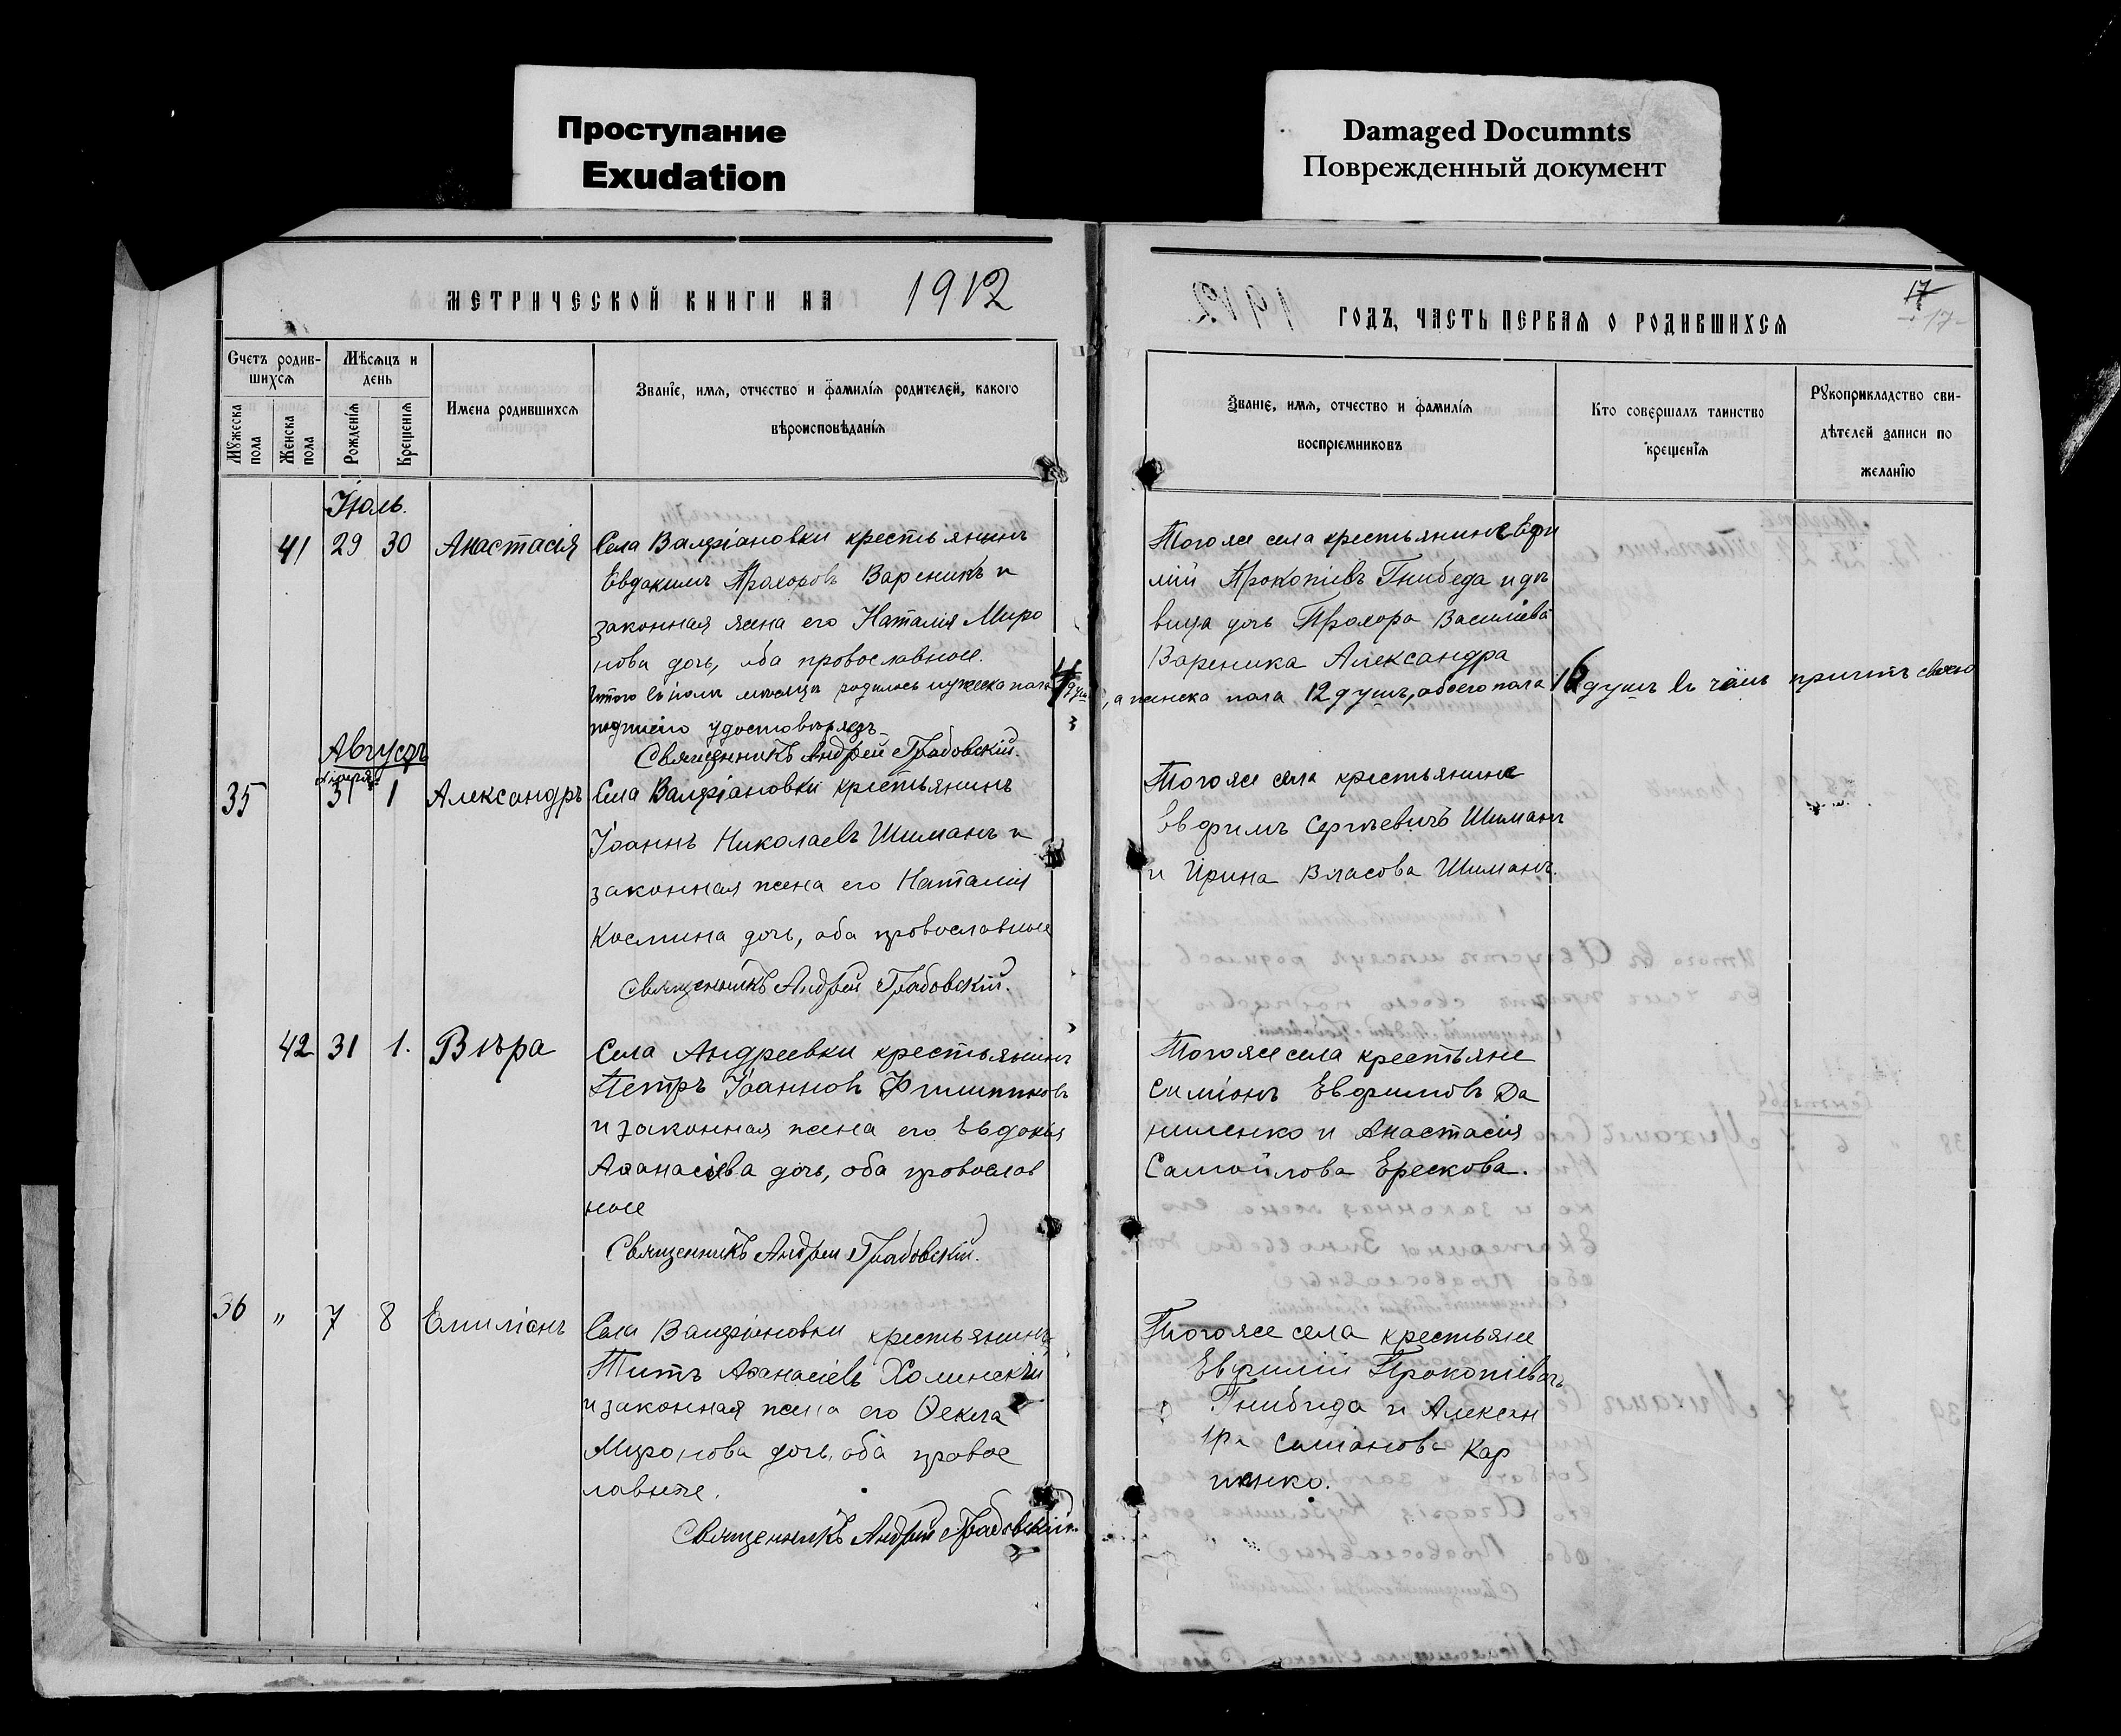 Проступание
Exudation
Damaged Documnts
Поврежденный документ
МЕТРИЧЕСКОЙ КНИГИ НА 1912
Счетъ родив-
шихся
Мѣсяцъ и
день
Мужеска
пола
Женска
пола
Рожденія
Крещенія
Имена родившихся
Званіе, имя, отчество и фамилія родителей, какого
вѣроисповѣданія
Іюль.
41 29 30 Анастасія Села Валеріановки крестьянинъ
Евдокимъ Прохоровъ Вареникъ и
законная жена его Наталія Миро
нова дочь, оба православные.
Итого въ іюлѣ мѣсяцѣ родилось мужеска пола
подписью удостовѣряетъ
Священникъ Андрей Грабовскій.
Августъ
35 31 1 Александръ Села Валеріановки крестьянинъ
Іоаннъ Николаевъ Шиманъ и
законная жена его Наталія
Космина дочь, оба православные
Священникъ Андрей Грабовскій.
42 31 1. Вѣра Села Андреевки крестьянинъ
Петръ Іоанновъ Филипповъ
и законная жена его Евдокія
Аѳанасіева дочь, оба православ
ные
Священникъ Андрей Грабовскій.
36 „ 7 8 Емиліанъ Села Валеріановки крестьянинъ
Титъ Аѳанасіевъ Холинскій
и законная жена его Ѳекла
Миронова дочь, оба правос
лавные.
Священникъ Андрей Грабовскій.
17
-17-
ГОДЪ, ЧАСТЬ ПЕРВАЯ О РОДИВШИХСЯ
Званіе, имя, отчество и фамилія
воспріемниковъ
Кто совершалъ таинство
крещенія
Рукоприкладство сви-
дѣтелей записи по
желанію
Того же села крестьянинъ Евфи
мій Прокопіевъ Гнибеда и дѣ
вица дочь Прохора Василіева
Вареника Александра
, а женска пола 12 душъ, обоего пола 16 душъ въ чёмъ причтъ своею
Того же села крестьяне
Евфимъ Сергѣевичъ Шиманъ
и Ирина Власова Шиманъ.
Того же села крестьяне
Симіонъ Евфимовъ Да
ниленко и Анастасія
Самойлова Ерескова.
Того же села крестьяне
Евфимій Прокопіевъ
Гнибида и Алексан
дра Симіонова Кар
пенко.